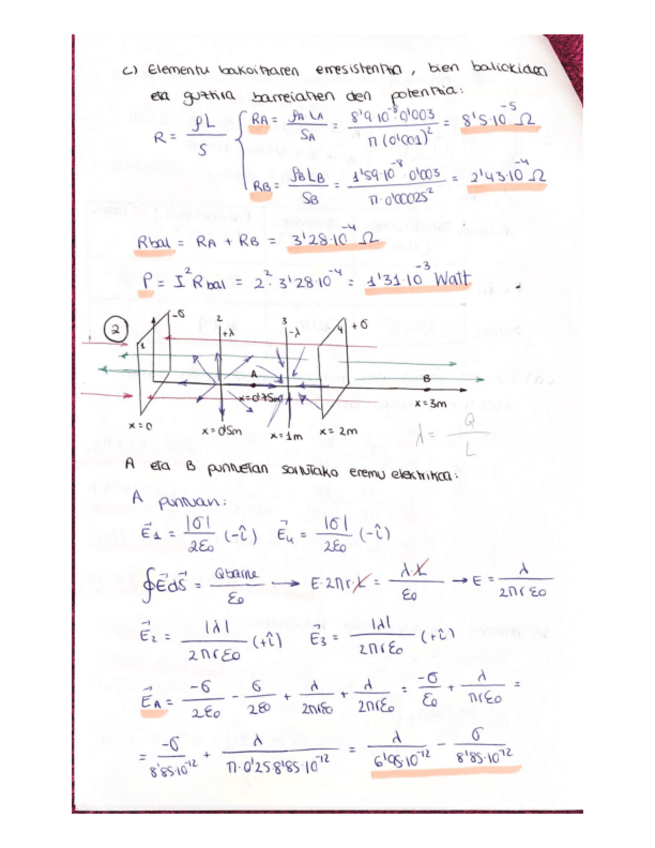 c) Elementu bakoitzaren erresistentzia, bien baliokidea
eta guztira barreiatzen den potentzia:
R = ρL / S { RA = ρA LA / SA = 8'9·10⁻³ 0'003 / π(0'001)² = 8'5·10⁻⁵ Ω
RB = ρB LB / SB = 1'59·10⁻⁸ · 0'003 / π·0'00025² = 2'43·10⁻⁴ Ω
Rbal = RA + RB = 3'28·10⁻⁴ Ω
P = I² Rbal = 2² · 3'28·10⁻⁴ = 1'31·10⁻³ Watt
② 1 -σ 2 +λ 3 -λ 4 +σ
A B
x=0'75m x=3m
x=0 x=0'5m x=1m x=2m λ = Q / L
A eta B puntuetan sortutako eremu elektrikoa:
A puntuan:
E⃗1 = |σ| / 2ε₀ (-î) E⃗4 = |σ| / 2ε₀ (-î)
∮E⃗dS⃗ = Qbarne / ε₀ → E·2πr·L = λ·L / ε₀ → E = λ / 2πrε₀
E⃗2 = |λ| / 2πrε₀ (+î) E⃗3 = |λ| / 2πrε₀ (+î)
E⃗A = -σ / 2ε₀ - σ / 2ε₀ + λ / 2πrε₀ + λ / 2πrε₀ = -σ / ε₀ + λ / πrε₀ =
= -σ / 8'85·10⁻¹² + λ / π·0'25 8'85·10⁻¹² = λ / 6'95·10⁻¹² - σ / 8'85·10⁻¹²